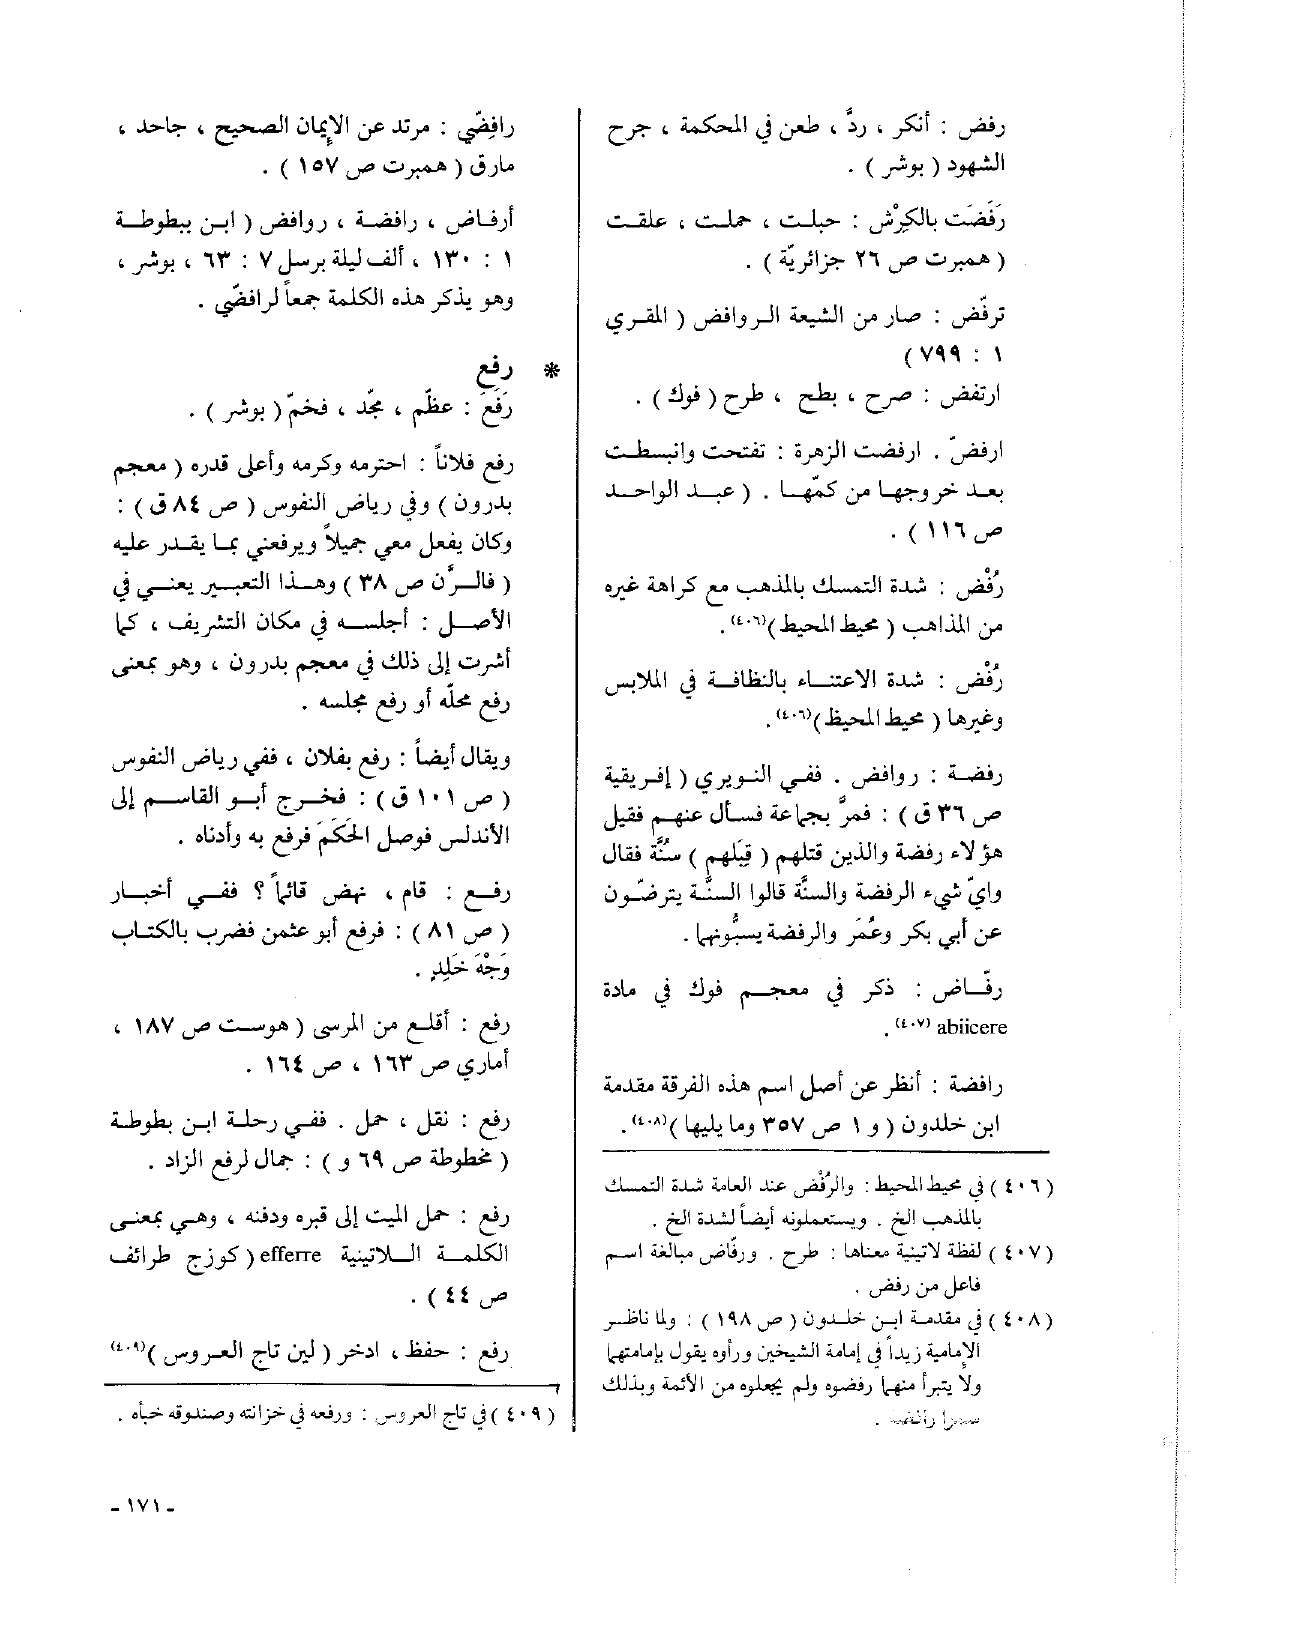 رفض : أنكر ، ردَّ ، طعن في المحكمة ، جرح
الشهود ( بوشر ) .
رَفَضَت بالكِرْش : حبلت ، حملت ، علقت
( همبرت ص ٢٦ جزائريّة ) .
ترفّض : صار من الشيعة الروافض ( المقري
١ : ٧٩٩ )
ارتفض : صرح ، بطح ، طرح ( فوك ) .
ارفضّ . ارفضت الزهرة : تفتحت وانبسطت
بعد خروجها من كمّها . ( عبد الواحد
ص ١١٦ ) .
رُفْض : شدة التمسك بالمذهب مع كراهة غيره
من المذاهب ( محيط المحيط )(٤٠٦).
رُفْض : شدة الاعتناء بالنظافة في الملابس
وغيرها ( محيط المحيظ )(٤٠٦).
رفضة : روافض . ففي النويري ( إفريقية
ص ٣٦ ق ) : فمرَّ بجماعة فسأل عنهم فقيل
هؤلاء رفضة والذين قتلهم ( قِبَلهم ) سنُّة فقال
وايّ شيء الرفضة والسنَّة قالوا السنَّة يترضّون
عن أبي بكر وعُمَر والرفضة يسبُّونها .
رفّاض : ذكر في معجم فوك في مادة
abiicere (٤٠٧).
رافضة : أنظر عن أصل اسم هذه الفرقة مقدمة
ابن خلدون ( و ١ ص ٣٥٧ وما يليها )(٤٠٨).
( ٤٠٦ ) في محيط المحيط : والرُفْض عند العامة شدة التمسك
بالمذهب الخ . ويستعملونه أيضاً لشدة الخ .
( ٤٠٧ ) لفظة لاتينية معناها : طرح . ورفّاض مبالغة اسم
فاعل من رفض .
( ٤٠٨ ) في مقدمة ابن خلدون ( ص ١٩٨ ) : ولما ناظر
الإمامية زيداً في إمامة الشيخين ورأوه يقول بإمامتها
ولا يتبرأ منهما رفضوه ولم يجعلوه من الأئمة وبذلك
سموا رافضة .
رافِضّي : مرتد عن الإيمان الصحيح ، جاحد ،
مارق ( همبرت ص ١٥٧ ) .
أرفاض ، رافضة ، روافض ( ابن ببطوطة
١ : ١٣٠ ، ألف ليلة برسل ٧ : ٦٣ ، بوشر ،
وهو يذكر هذه الكلمة جمعاً لرافضّي .
* رفع
رَفَعَ : عظّم ، مجّد ، فخمّ ( بوشر ) .
رفع فلاناً : احترمه وكرمه وأعلى قدره ( معجم
بدرون ) وفي رياض النفوس ( ص ٨٤ ق ) :
وكان يفعل معي جميلاً ويرفعني بما يقدر عليه
( فالرَّن ص ٣٨ ) وهذا التعبير يعني في
الأصل : أجلسه في مكان التشريف ، كما
أشرت إلى ذلك في معجم بدرون ، وهو بمعنى
رفع محلّه أو رفع مجلسه .
ويقال أيضاً : رفع بفلان ، ففي رياض النفوس
( ص ١٠١ ق ) : فخرج أبو القاسم إلى
الأندلس فوصل الحَكَمَ فرفع به وأدناه .
رفع : قام ، نهض قائماً ؟ ففي أخبار
( ص ٨١ ) : فرفع أبو عثمن فضرب بالكتاب
وَجْهَ خَلِدٍ .
رفع : أقلع من المرسى ( هوست ص ١٨٧ ،
أماري ص ١٦٣ ، ص ١٦٤ .
رفع : نقل ، حمل . ففي رحلة ابن بطوطة
( مخطوطة ص ٦٩ و ) : جمال لرفع الزاد .
رفع : حمل الميت إلى قبره ودفنه ، وهي بمعنى
الكلمة اللاتينية efferre ( كوزج طرائف
ص ٤٤ ) .
رفع : حفظ ، ادخر ( لين تاج العروس )(٤٠٩)
( ٤٠٩ ) في تاج العروس : ورفعه في خزانته وصندوقه خبأه .
- ١٧١ -